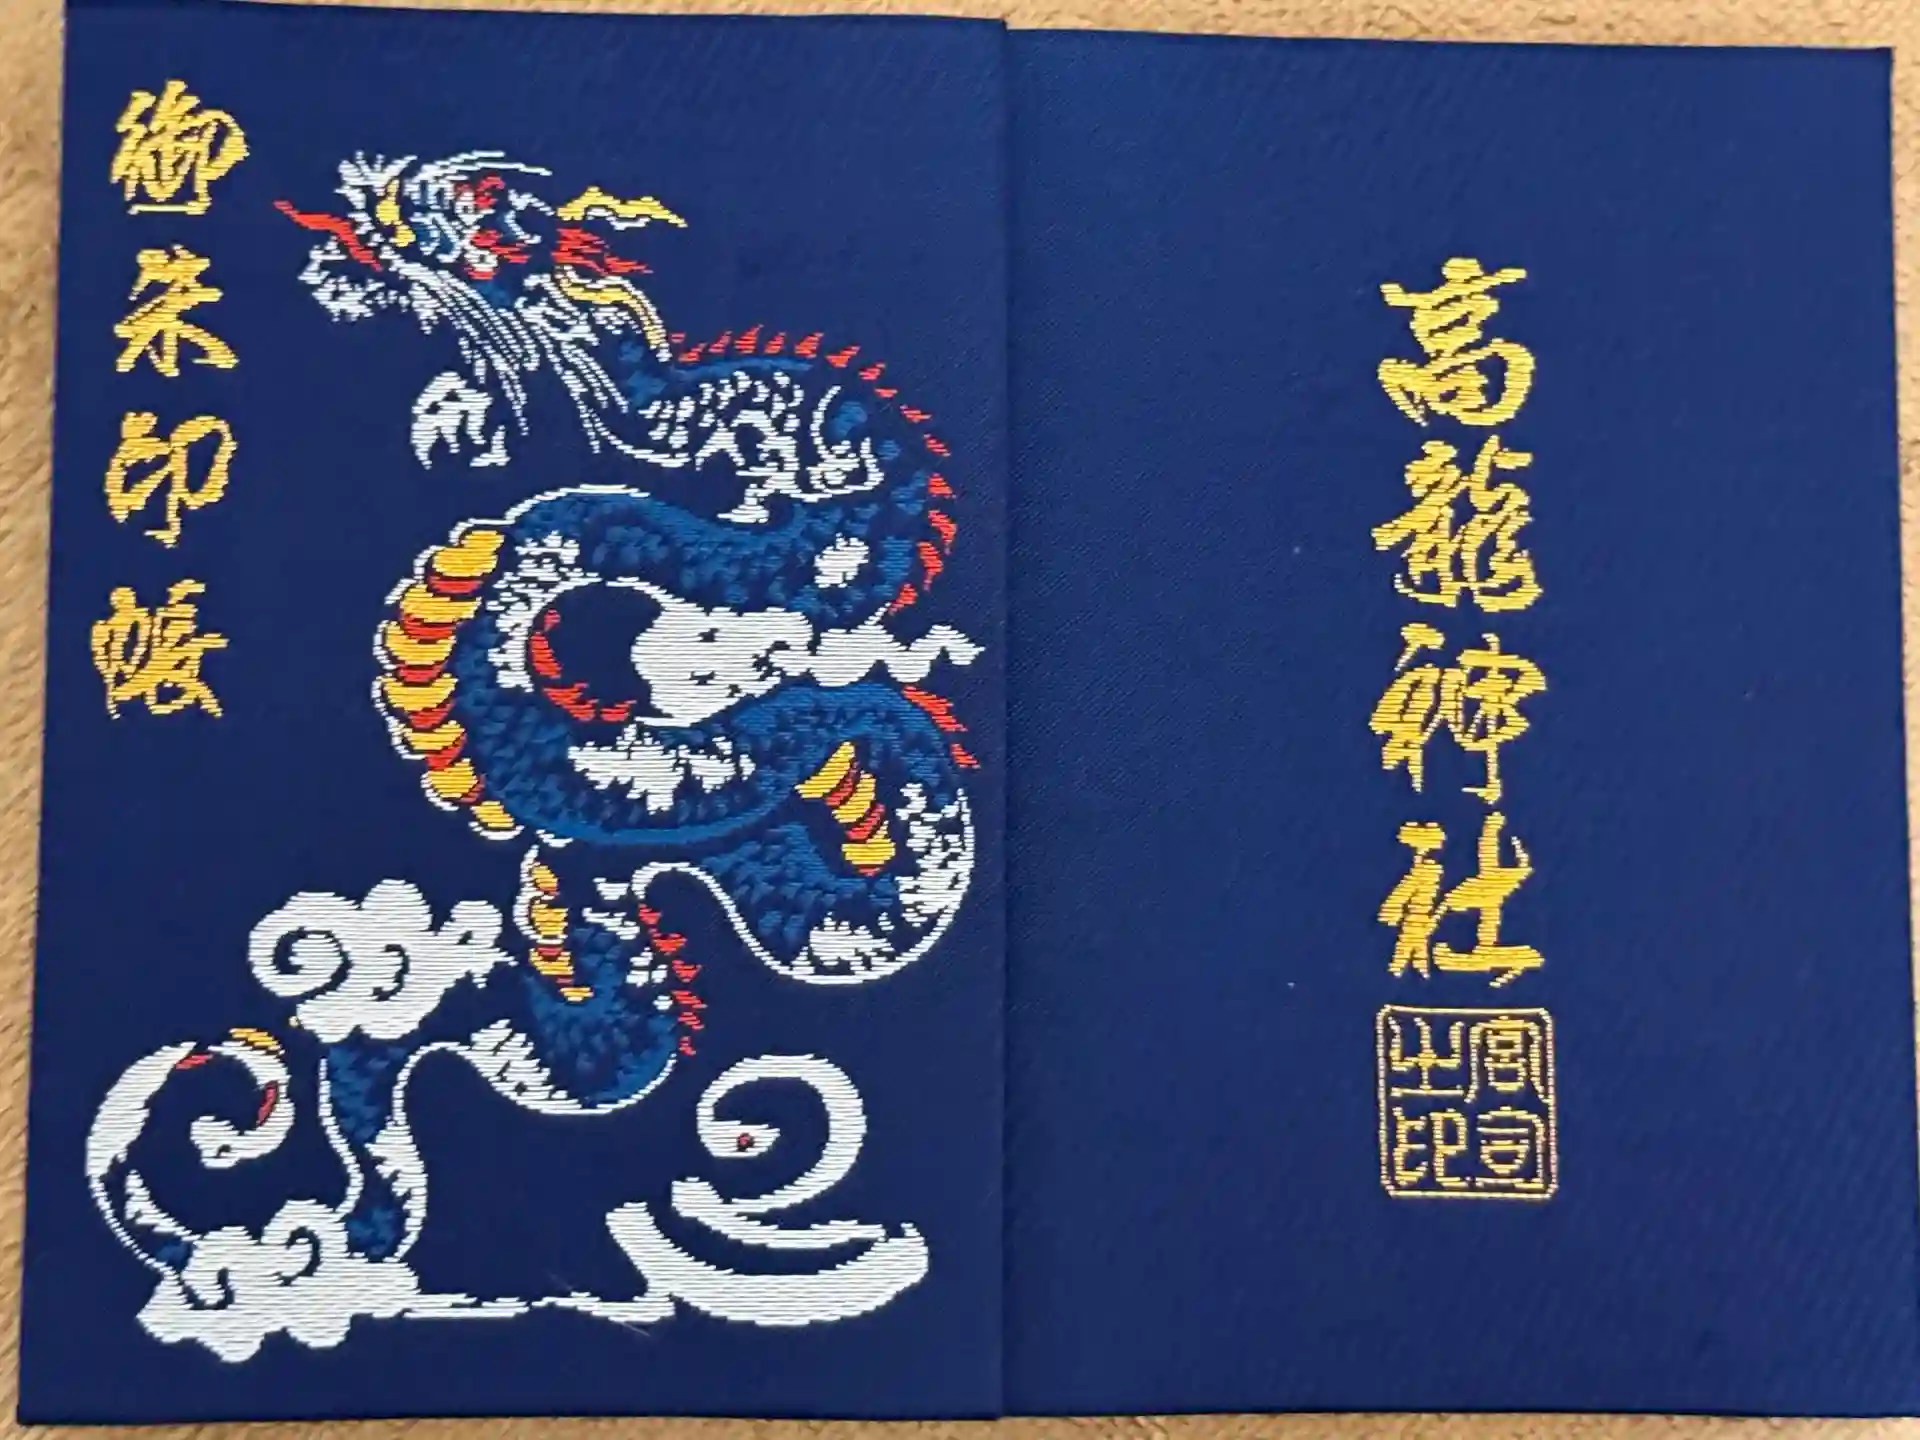 御朱印帳
高龍神社
宮宣
之印